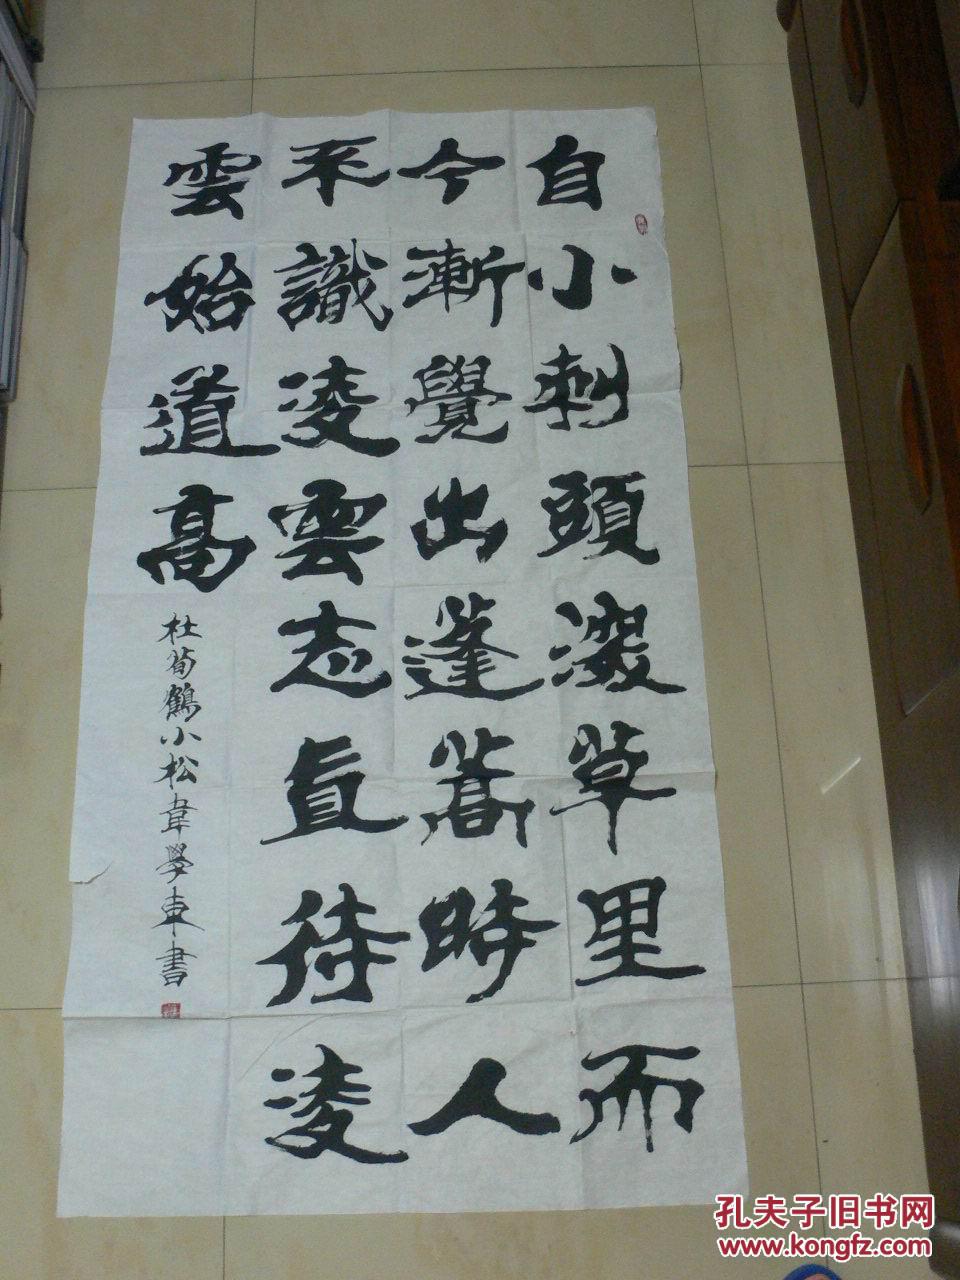 自小刺頭深草里而
今漸覺出蓬蒿時人
不識凌雲志直待凌
雲始道高
杜荀鶴小松韋學東書
孔夫子旧书网
www.kongfz.com